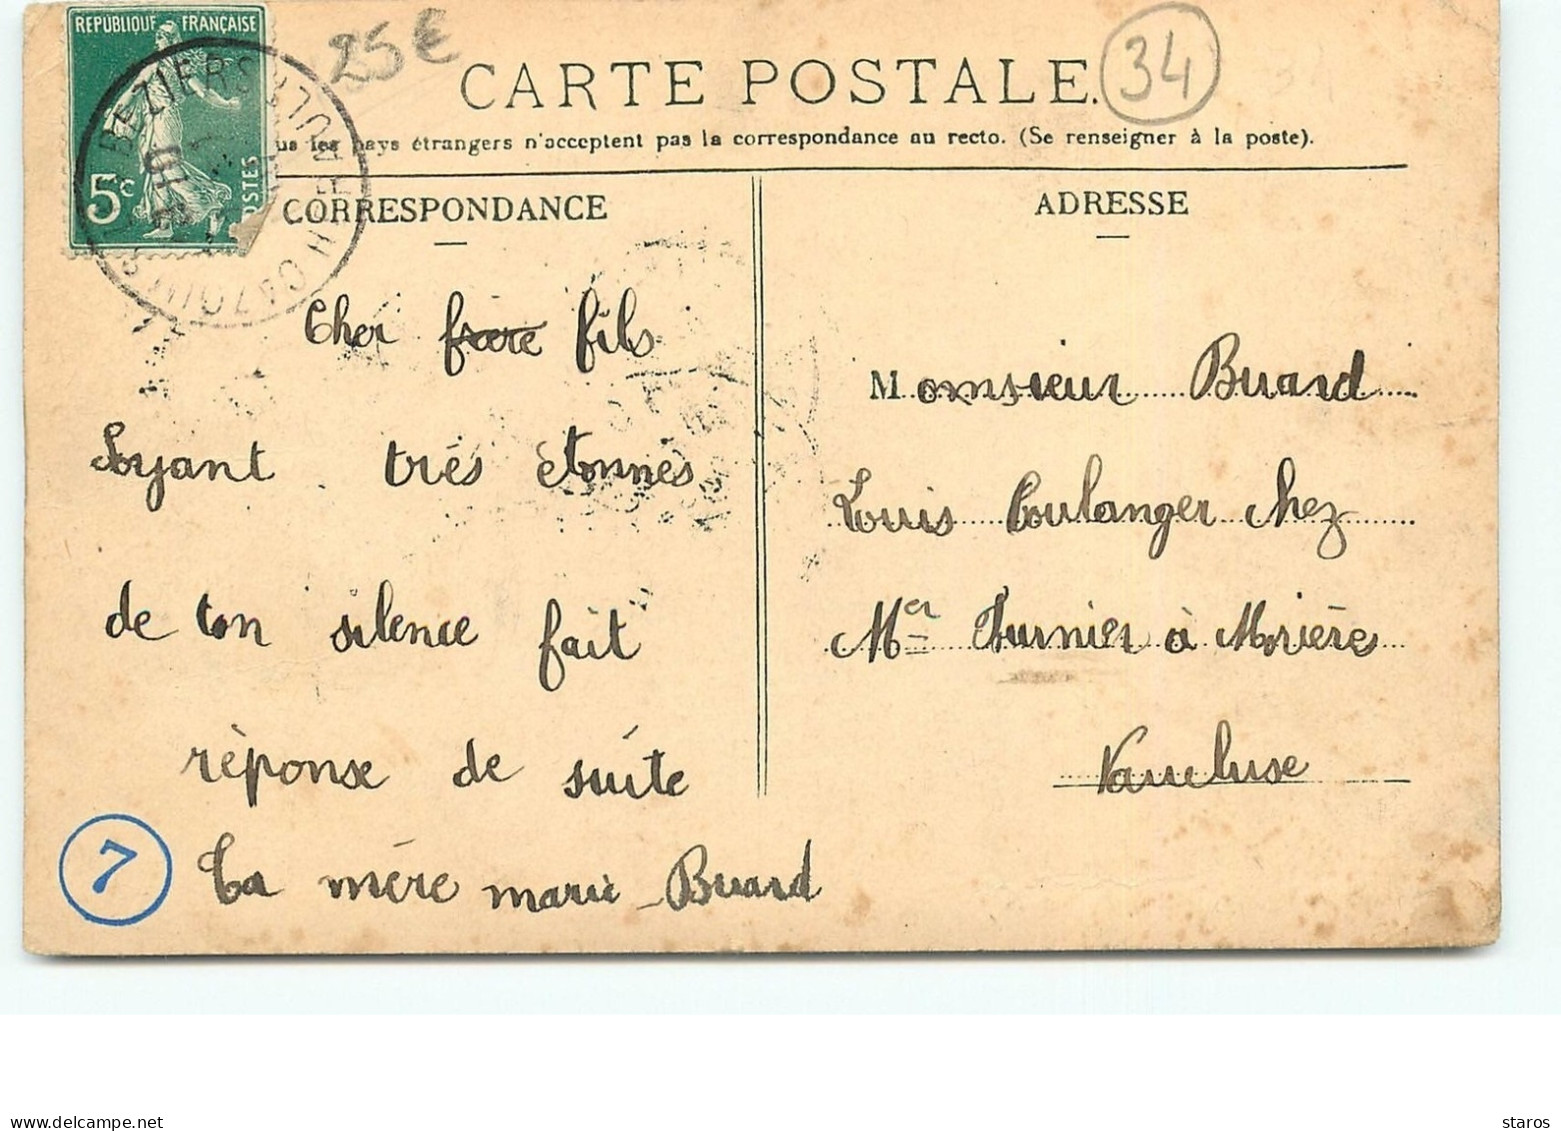 RÉPUBLIQUE FRANÇAISE
5c
POSTES
BEZIERS
25€
34
CARTE POSTALE.
les pays étrangers n'acceptent pas la correspondance au recto. (Se renseigner à la poste).
CORRESPONDANCE
Cher frere fils
Soyant très etonnés
de ton silence fait
réponse de suite
Ta mère marie Buard
7
ADRESSE
Monsieur Buard
Louis Boulanger chez
Mer Furnier à Morière
Vaucluse
delcampe.net
staros